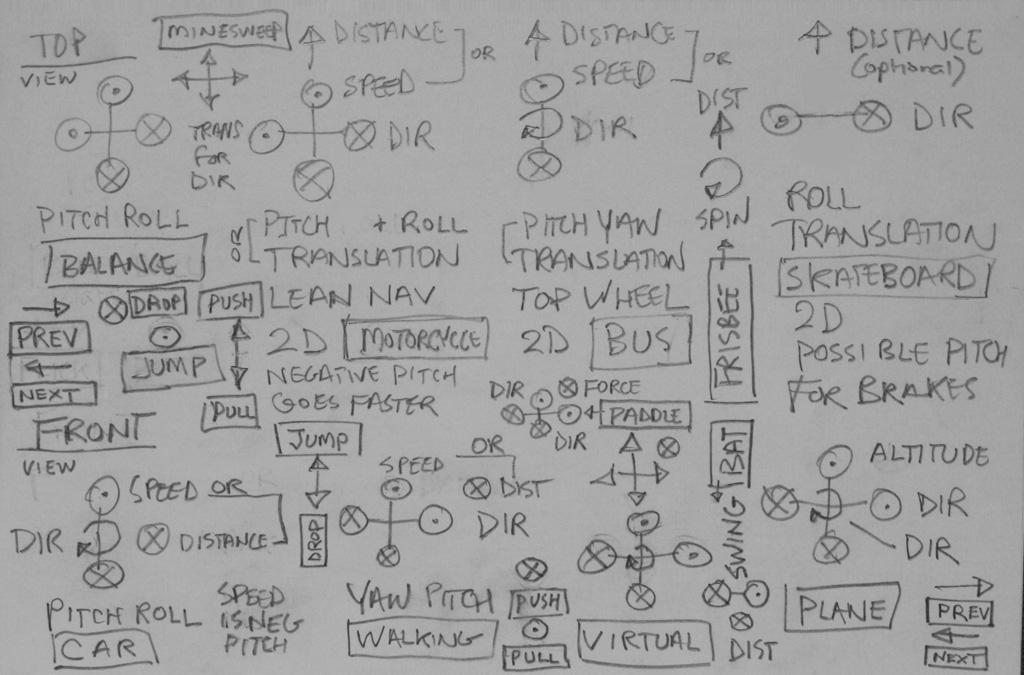 TOP
VIEW
MINESWEEP
TRANS
FOR
DIR
PITCH ROLL
BALANCE
DISTANCE
OR
SPEED
DIR
OR
PITCH + ROLL
TRANSLATION
LEAN NAV
2D MOTORCYCLE
NEGATIVE PITCH
GOES FASTER
DISTANCE
OR
SPEED
DIR
PITCH YAW
TRANSLATION
TOP WHEEL
2D BUS
DIST
SPIN
FRISBEE
DISTANCE
(optional)
DIR
ROLL
TRANSLATION
SKATEBOARD
2D
POSSIBLE PITCH
FOR BRAKES
PREV
NEXT
DROP
JUMP
PUSH
PULL
FRONT
VIEW
SPEED OR
DIR
DISTANCE
PITCH ROLL
CAR
SPEED
IS NEG
PITCH
JUMP
DROP
SPEED
OR
DIST
DIR
YAW PITCH
WALKING
DIR
FORCE
PADDLE
DIR
PUSH
PULL
VIRTUAL
BAT
SWING
DIST
ALTITUDE
DIR
DIR
PLANE
PREV
NEXT